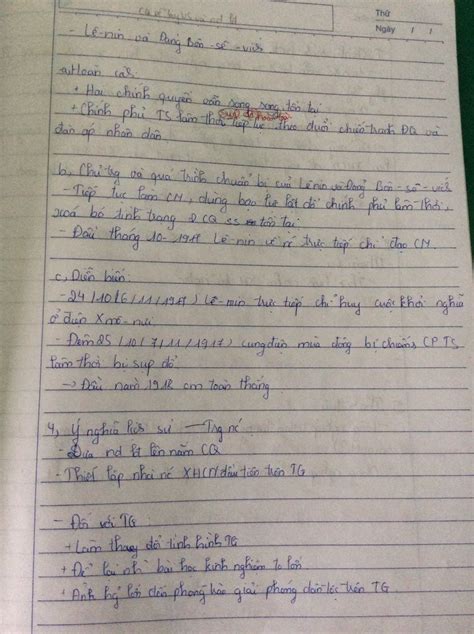 Thứ
Ngày / /
- Lê-nin và Đảng Bôn-sê-vích
a, Hoàn cảnh
+ Hai chính quyền vẫn song song tồn tại
+ Chính phủ TS lâm thời tiếp tục theo đuổi chiến tranh ĐQ và
đàn áp nhân dân
b, Chủ trg và quá trình chuẩn bị của Lênin và Đảng Bôn-sê-vích
- Tiếp tục làm CM, dùng bạo lực lật đổ chính phủ lâm thời,
xoá bỏ tình trạng 2 CQ ss tồn tại
- Đầu tháng 10-1917 Lê-nin về nc trực tiếp chỉ đạo CM.
c, Diễn biến:
- 24/10 (6/11/1917) Lê-nin trực tiếp chỉ huy cuộc khởi nghĩa
ở điện Xmô-nưi
- Đêm 25/10 (7/11/1917) cung điện mùa đông bị chiếm, CP TS
lâm thời bị sụp đổ
→ Đầu năm 1918 cm toàn thắng
4, Ý nghĩa lịch sử — Trg nc:
- Đưa nd lđ lên nắm CQ
- Thiết lập nhà nc XHCN đầu tiên trên TG
- Đối với TG:
+ Làm thay đổi tình hình TG
+ Để lại nh bài học kinh nghiệm to lớn
+ Ảnh hg lớn đến phong trào giải phóng dân tộc trên TG